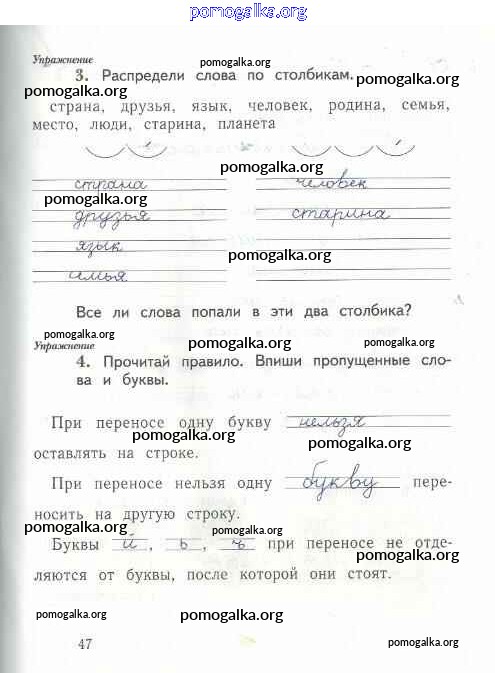 pomogalka.org
Упражнение
pomogalka.org
3. Распредели слова по столбикам.
pomogalka.org
pomogalka.org
страна, друзья, язык, человек, родина, семья,
место, люди, старина, планета
pomogalka.org
страна человек
pomogalka.org
друзья старина
язык
pomogalka.org
семья
Все ли слова попали в эти два столбика?
pomogalka.org pomogalka.org pomogalka.org
Упражнение
4. Прочитай правило. Впиши пропущенные сло-
ва и буквы.
При переносе одну букву нельзя
pomogalka.org pomogalka.org
оставлять на строке.
При переносе нельзя одну букву пере-
носить на другую строку.
pomogalka.org pomogalka.org
Буквы й, ь, ъ при переносе не отде-
pomogalka.org
ляются от буквы, после которой они стоят.
pomogalka.org pomogalka.org
47 pomogalka.org